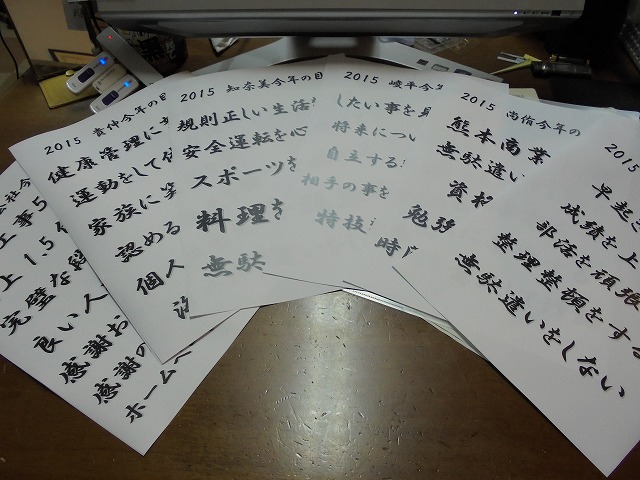 会社今
工事5
上 1.5
完璧な
良い人
感謝お
感謝の
ホームペ
2015 貴仲今年の目
健康管理に
運動をして
家族に笑
認める
個人
2015 知奈美今年の目
規則正しい生活
安全運転を心
スポーツを
料理を
無駄
2015 峻平今年
したい事を見
将来につい
自立する
相手の事を
特技
2015 今年の
熊本商業
無駄遣い
資格
勉強
時間
2015
早起き
成績を上
部活を頑張
整理整頓をする
無駄遣いをしない